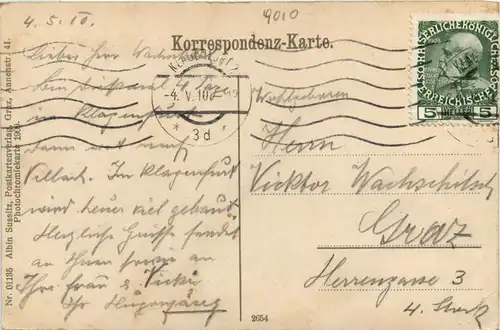 4. 5. 10.
9010
Korrespondenz-Karte.
KAISERLICHEKÖNIGLICHE
ÖSTERREICHISCHE POST
5 HELLER 5
KLAGENFURT 2
-4. V. 10
* 3d *
Lieber Herr
in Klagenfurt
dann
Villach. In Klagenfurt
wird heuer viel gebaut.
Herzliche Grüße sendet
an Ihnen sowie an
Ihre Frau & Vicki
Ihr
Wohlgeboren
Herrn
Vicktor Wachschitsch
Graz
Herrengasse 3
4. Stock
Nr. 01135 Albin Sussitz, Postkartenverlag, Graz, Annenstr. 41.
Photochromiekarte 1909.
2654